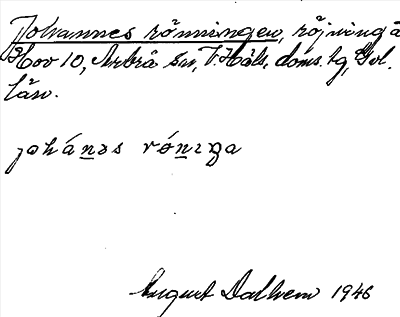 Johannes rönningen, röjning å
Hov 10, Arbrå sn, V. Häls. doms. tg, Gvl.
län.
johánəs rónıŋa
August Dalhem 1946